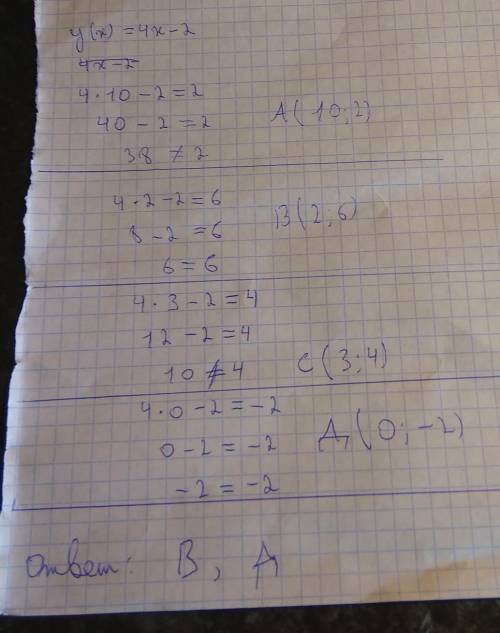 y(x) = 4x - 2
4x - 2
4 · 10 - 2 = 2
40 - 2 = 2 A(10; 2)
38 ≠ 2
4 · 2 - 2 = 6
8 - 2 = 6 B(2; 6)
6 = 6
4 · 3 - 2 = 4
12 - 2 = 4
10 ≠ 4 C(3; 4)
4 · 0 - 2 = -2
0 - 2 = -2 Д(0; -2)
-2 = -2
Ответ: B, Д